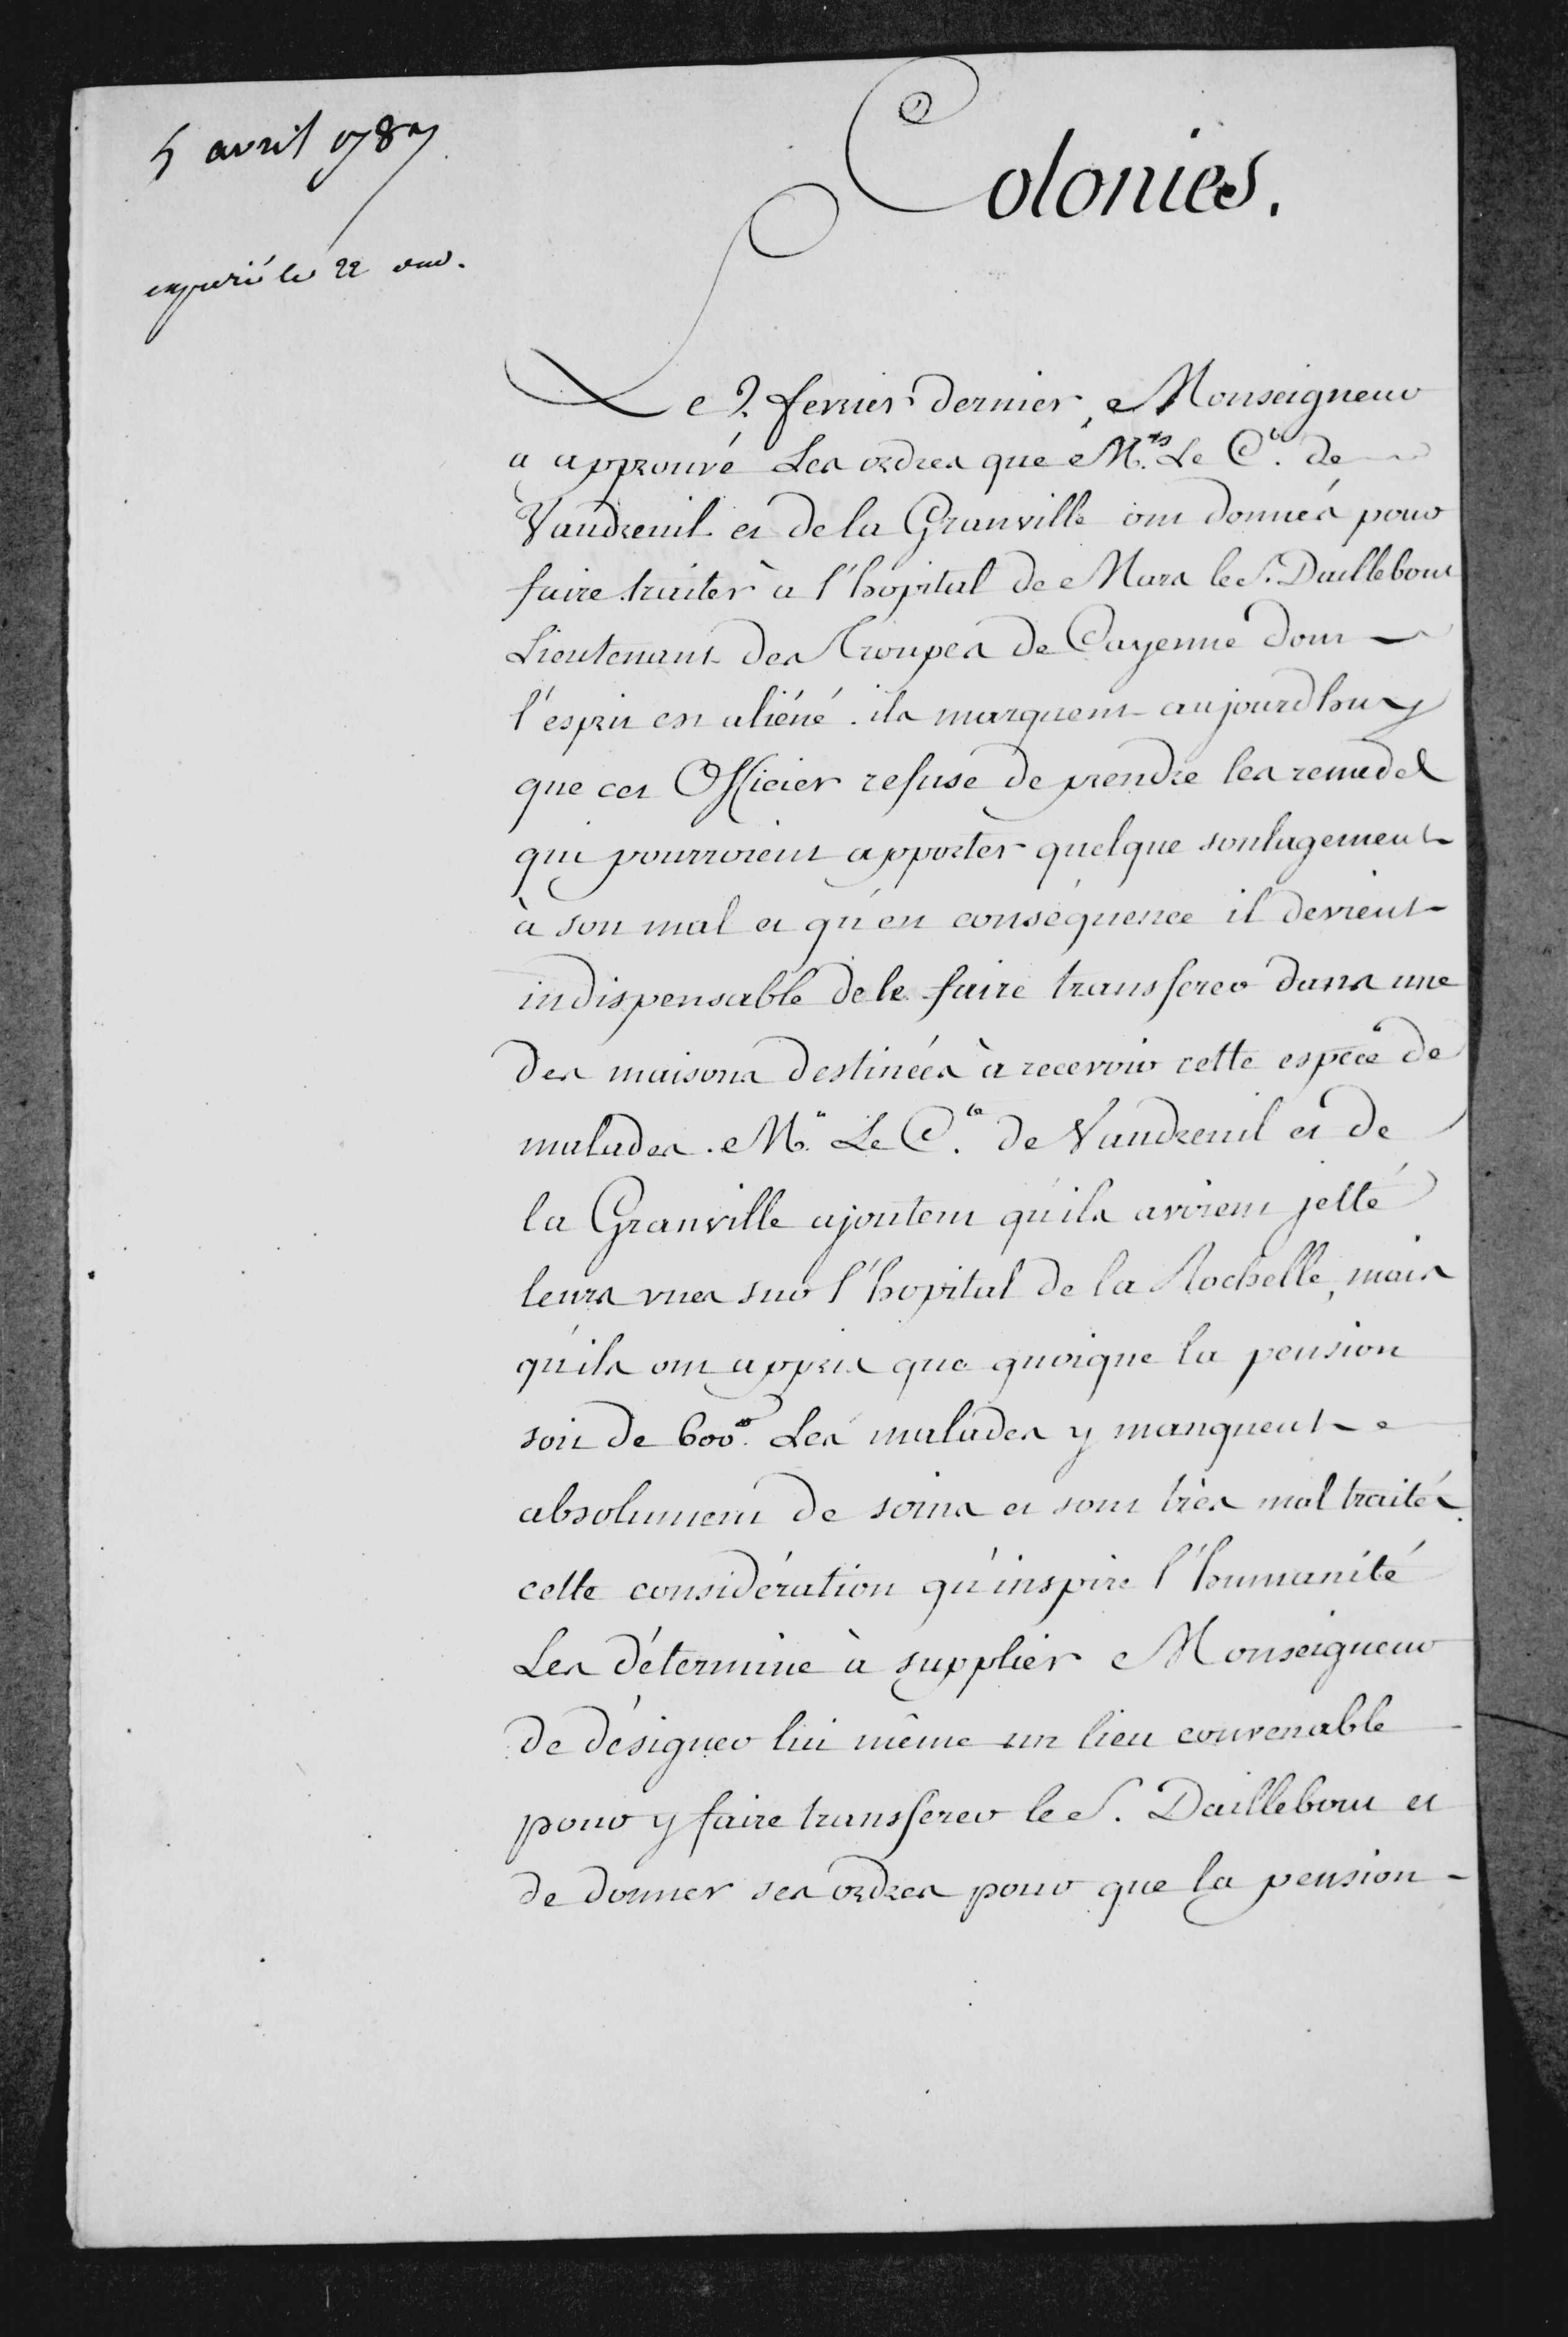 5 avril 1787
expedié le 22 dud.
Colonies.
Le 2. fevrier dernier, Monseigneur
a approuvé Les ordres que M.rs Le C.te de
Vaudreuil et de la Granville ont donnés pour
faire traiter à l'hopital de Mars le S. Daillebout
Lieutenant des Troupes de Cayenne dont
l'esprit est aliéné. ils marquent aujourdhuy
que cet Officier refuse de prendre les remedes
qui pourroient apporter quelque soulagement
à son mal et qu'en conséquence il devient
indispensable de le faire transferer dans une
des maisons destinées à recevoir cette espece de
malades. M.rs Le C.te de Vaudreuil et de
la Granville ajoutent qu'ils avoient jetté
leurs vues sur l'hopital de la Rochelle, mais
qu'ils ont appris que quoique la pension
soit de 600.tt Les malades y manquent
absolument de soins et sont très mal traités.
cette considération qu'inspire l'humanité
Les détermine à supplier Monseigneur
de désigner lui même un lieu convenable
pour y faire transferer le S. Daillebout et
de donner ses ordres pour que la pension